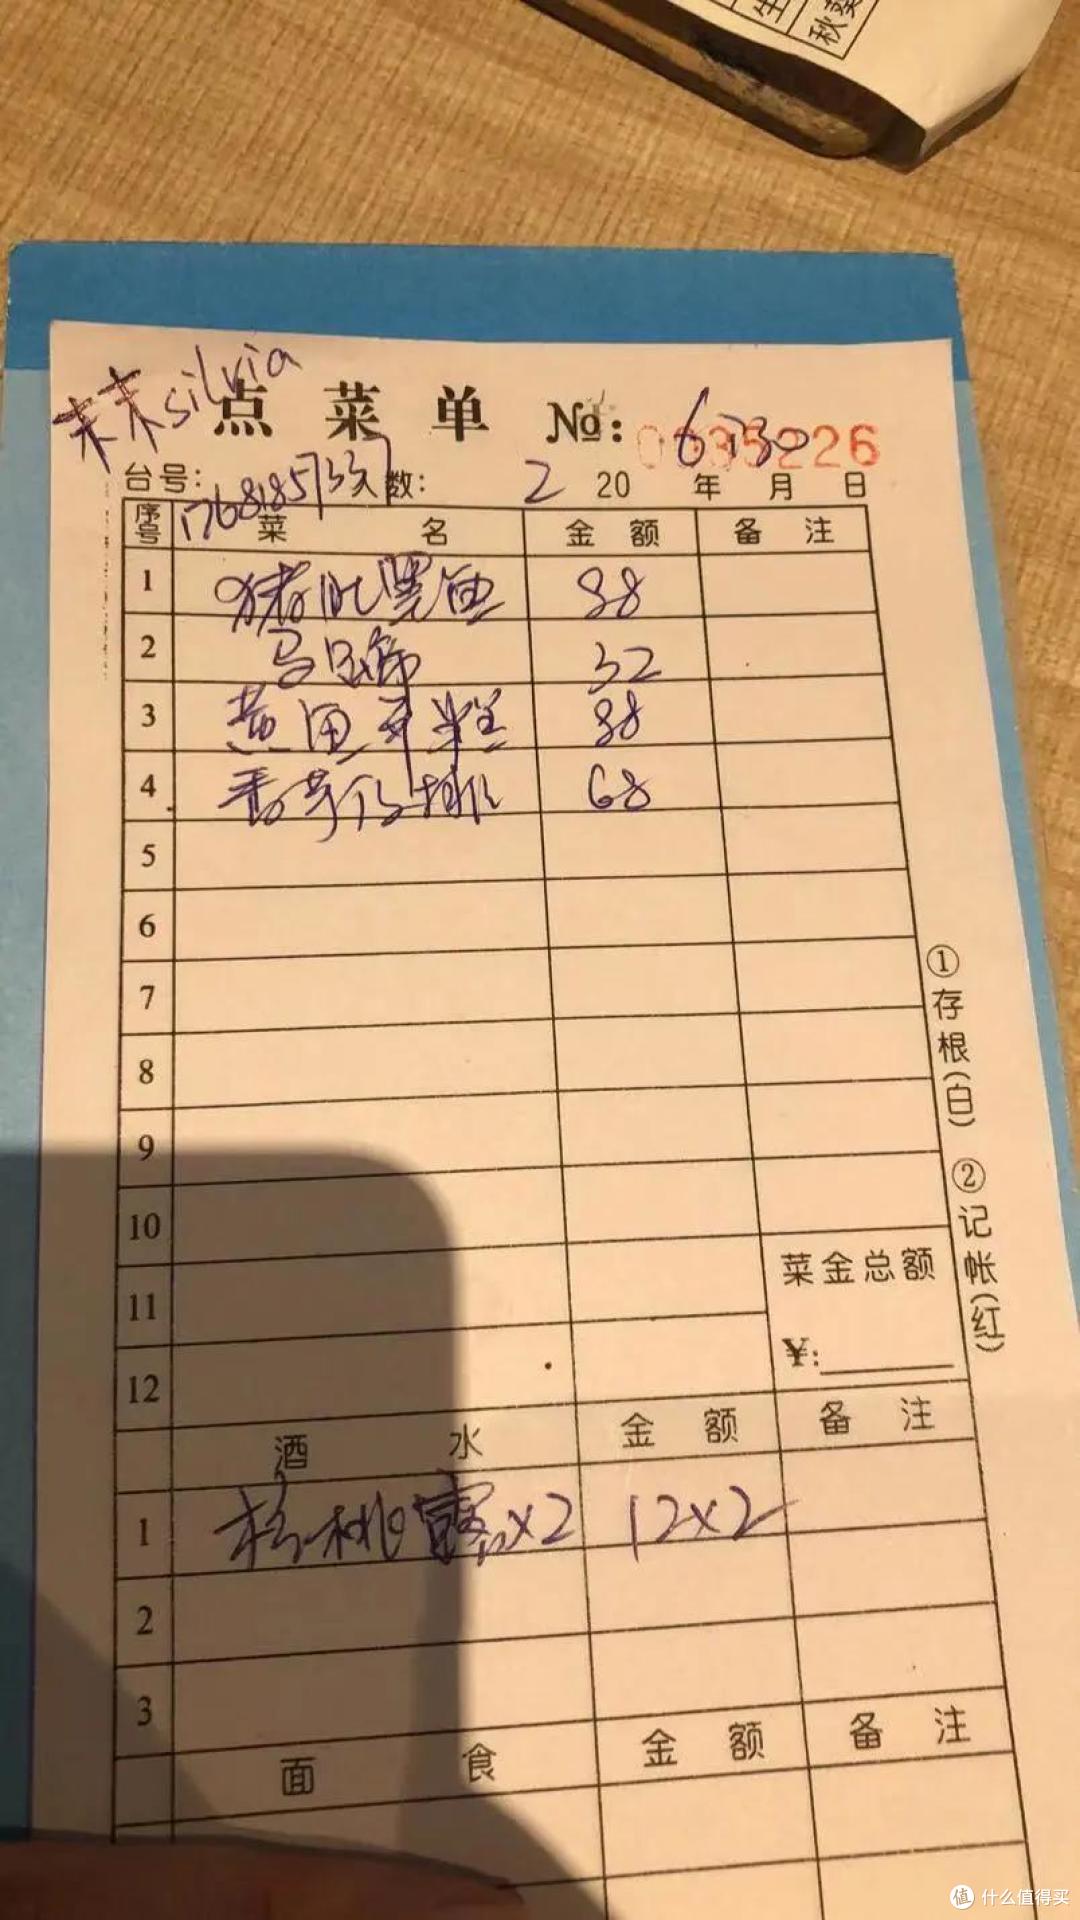 生
秋葵
末末silvia
点菜单 №: 0035226
6:30
台号: 人数: 2 20 年 月 日
序号 菜名 金额 备注
1 猪肚黑鱼 88
2 马兰头 32
3 黄鱼年糕 88
4 香芋仔排 68
5
6
7
8
9
10
11
12
菜金总额
¥:
酒水 金额 备注
1 核桃露x2 12x2
2
3
面食 金额 备注
①存根(白) ②记帐(红)
值 什么值得买